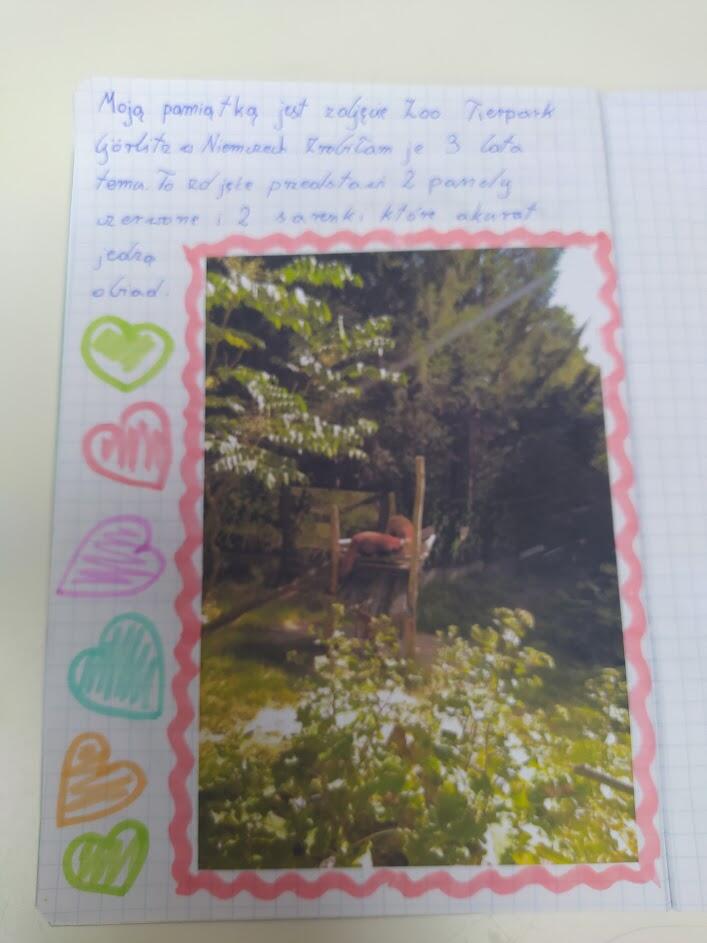 Moją pamiątką jest zdjęcie Zoo Tierpark
Görlitz w Niemczech Zrobiłam je 3 lata
temu. To zdjęcie przedstawi 2 pandy
czerwone i 2 sarenki które akurat
jedzą
obiad.